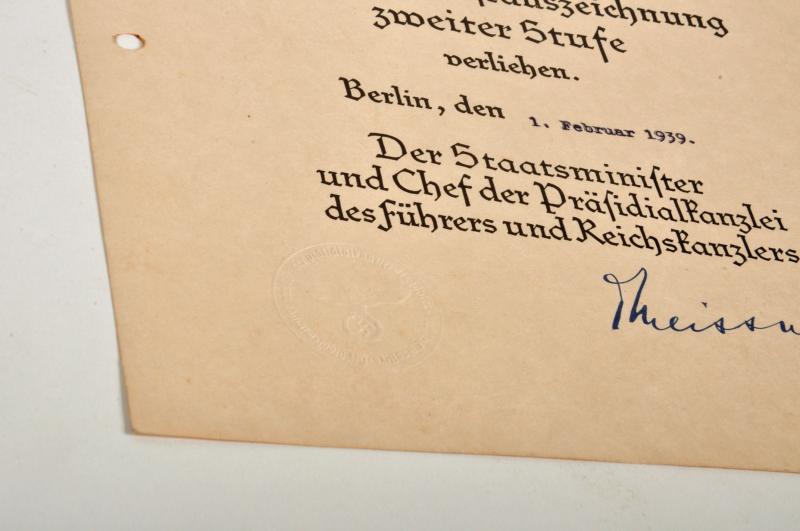 auszeichnung
zweiter Stufe
verliehen.
Berlin, den 1. Februar 1939.
Der Staatsminiſter
und Chef der Präſidialkanzlei
des Führers und Reichskanzlers
Meissn